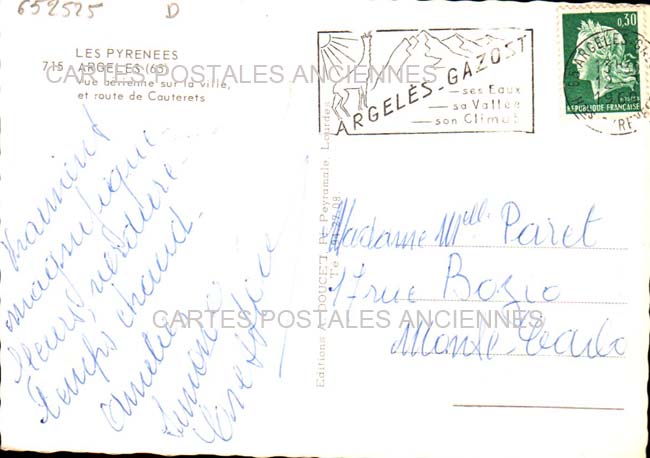 652525 D
LES PYRENEES
715 - ARGELÈS (65)
Vue aérienne sur la ville,
et route de Cauterets
CARTES POSTALES ANCIENNES
ARGELÈS-GAZOST
ses Eaux
sa Vallée
son Climat
0,30
REPUBLIQUE FRANÇAISE
Vraiment
magnifique
fleurs, verdure
temps chaud.
Editions DOUCET, Pl. Peyramale, Lourdes
Madame Mlle Paret
17 rue Bozio
Monte-Carlo
CARTES POSTALES ANCIENNES